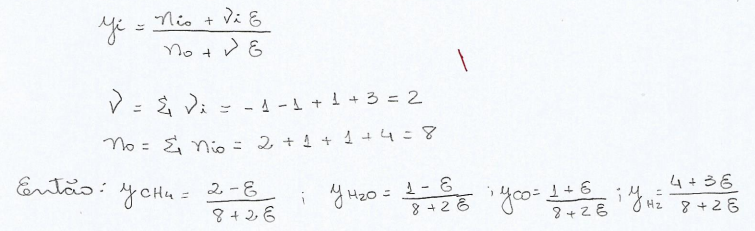 yi = (nio + νi ε) / (no + ν ε)
ν = Σ νi = -1 -1 + 1 + 3 = 2
no = Σ nio = 2 + 1 + 1 + 4 = 8
Então: yCH4 = (2 - ε) / (8 + 2ε) ; yH2O = (1 - ε) / (8 + 2ε) ; yCO = (1 + ε) / (8 + 2ε) ; yH2 = (4 + 3ε) / (8 + 2ε)